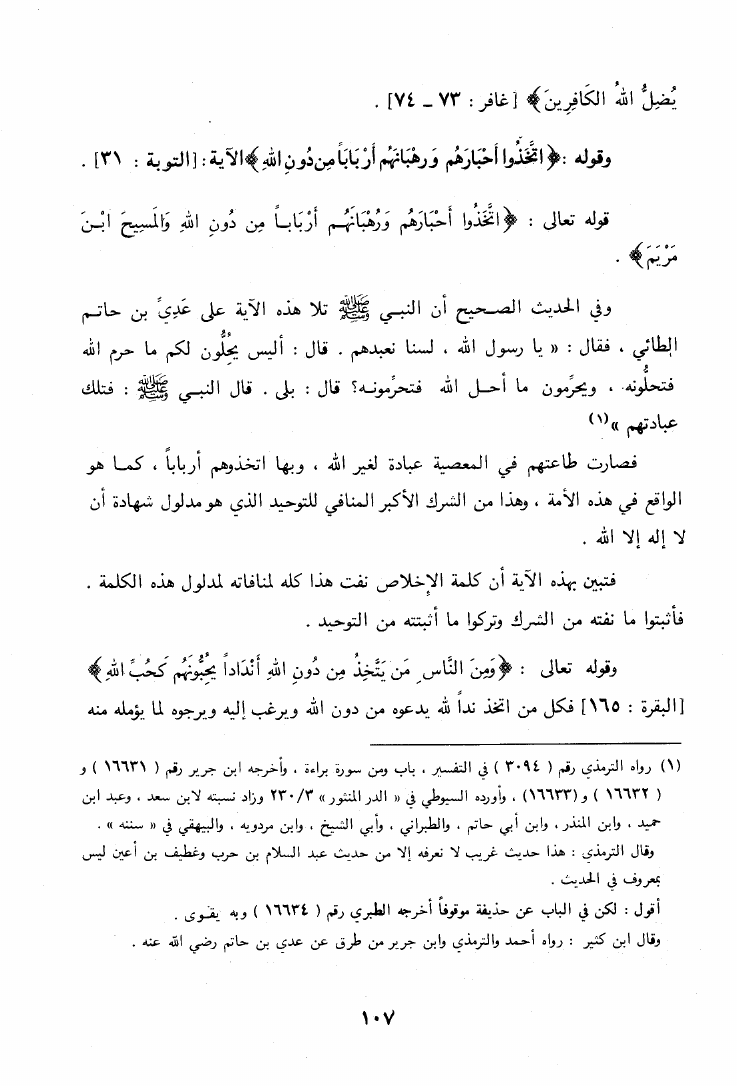 يُضِلُّ اللهُ الكَافِرِينَ﴾ [غافر : ٧٣ ــ ٧٤] .
وقوله :﴿اتَّخَذُوا أَحْبَارَهُم وَرهْبَانَهُم أَرْبَاباً مِن دُونِ اللهِ﴾الآية : [التوبة : ٣١] .
قوله تعالى : ﴿اتَّخَذُوا أَحْبَارَهُم وَرُهْبَانَهُم أَرْبَاباً مِن دُونِ اللهِ وَالمَسِيحَ ابْنَ
مَرْيَمَ﴾ .
وفي الحديث الصحيح أن النبي ﷺ تلا هذه الآية على عَدِيِّ بن حاتم
الطائي ، فقال : « يا رسول الله ، لسنا نعبدهم . قال : أليس يحِلُّون لكم ما حرم الله
فتحلُّونه ، ويحرِّمون ما أحل الله فتحرِّمونه؟ قال : بلى . قال النبي ﷺ : فتلك
عبادتهم »(١)
فصارت طاعتهم في المعصية عبادة لغير الله ، وبها اتخذوهم أرباباً ، كما هو
الواقع في هذه الأمة ، وهذا من الشرك الأكبر المنافي للتوحيد الذي هو مدلول شهادة أن
لا إله إلا الله .
فتبين بهذه الآية أن كلمة الإخلاص نفت هذا كله لمنافاته لمدلول هذه الكلمة .
فأثبتوا ما نفته من الشرك وتركوا ما أثبتته من التوحيد .
وقوله تعالى : ﴿وَمِنَ النَّاسِ مَن يَتَّخِذُ مِن دُونِ اللهِ أَنْدَاداً يُحِبُّونَهُم كَحُبِّ اللهِ﴾
[البقرة : ١٦٥] فكل من اتخذ نداً لله يدعوه من دون الله ويرغب إليه ويرجوه لما يؤمله منه
(١) رواه الترمذي رقم ( ٣٠٩٤ ) في التفسير ، باب ومن سورة براءة ، وأخرجه ابن جرير رقم ( ١٦٦٣١ ) و
( ١٦٦٣٢ ) و (١٦٦٣٣) ، وأورده السيوطي في « الدر المنثور » ٢٣٠/٣ وزاد نسبته لابن سعد ، وعبد ابن
حميد ، وابن المنذر ، وابن أبي حاتم ، والطبراني ، وأبي الشيخ ، وابن مردويه ، والبيهقي في « سننه » .
وقال الترمذي : هذا حديث غريب لا نعرفه إلا من حديث عبد السلام بن حرب وغطيف بن أعين ليس
بمعروف في الحديث .
أقول : لكن في الباب عن حذيفة موقوفاً أخرجه الطبري رقم ( ١٦٦٣٤ ) وبه يقوى .
وقال ابن كثير : رواه أحمد والترمذي وابن جرير من طرق عن عدي بن حاتم رضي الله عنه .
١٠٧